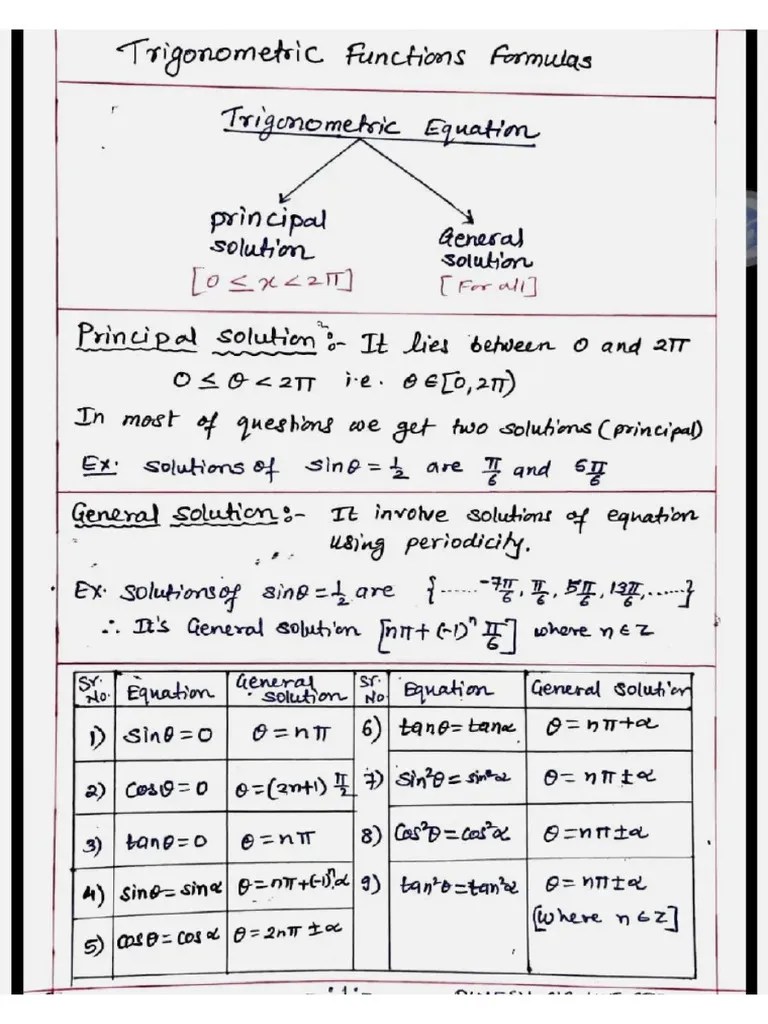 Trigonometric Functions Formulas
Trigonometric Equation
principal solution
[0 ≤ x < 2π]
General solution
[For all]
Principal solution :- It lies between 0 and 2π
0 ≤ θ < 2π i.e. θ ∈ [0, 2π)
In most of questions we get two solutions (principal)
Ex. solutions of sinθ = 1/2 are π/6 and 5π/6
General solution :- It involve solutions of equation
using periodicity.
Ex. solutions of sinθ = 1/2 are {...... -7π/6, π/6, 5π/6, 13π/6, ......}
∴ It's General solution [nπ + (-1)ⁿ π/6] where n ∈ Z
Sr. No. Equation General solution Sr. No Equation General solution
1) sinθ = 0 θ = nπ 6) tanθ = tanα θ = nπ + α
2) cosθ = 0 θ = (2n+1) π/2 7) sin²θ = sin²α θ = nπ ± α
3) tanθ = 0 θ = nπ 8) cos²θ = cos²α θ = nπ ± α
4) sinθ = sinα θ = nπ + (-1)ⁿα 9) tan²θ = tan²α θ = nπ ± α
[where n ∈ Z]
5) cosθ = cosα θ = 2nπ ± α
-: 1 :-